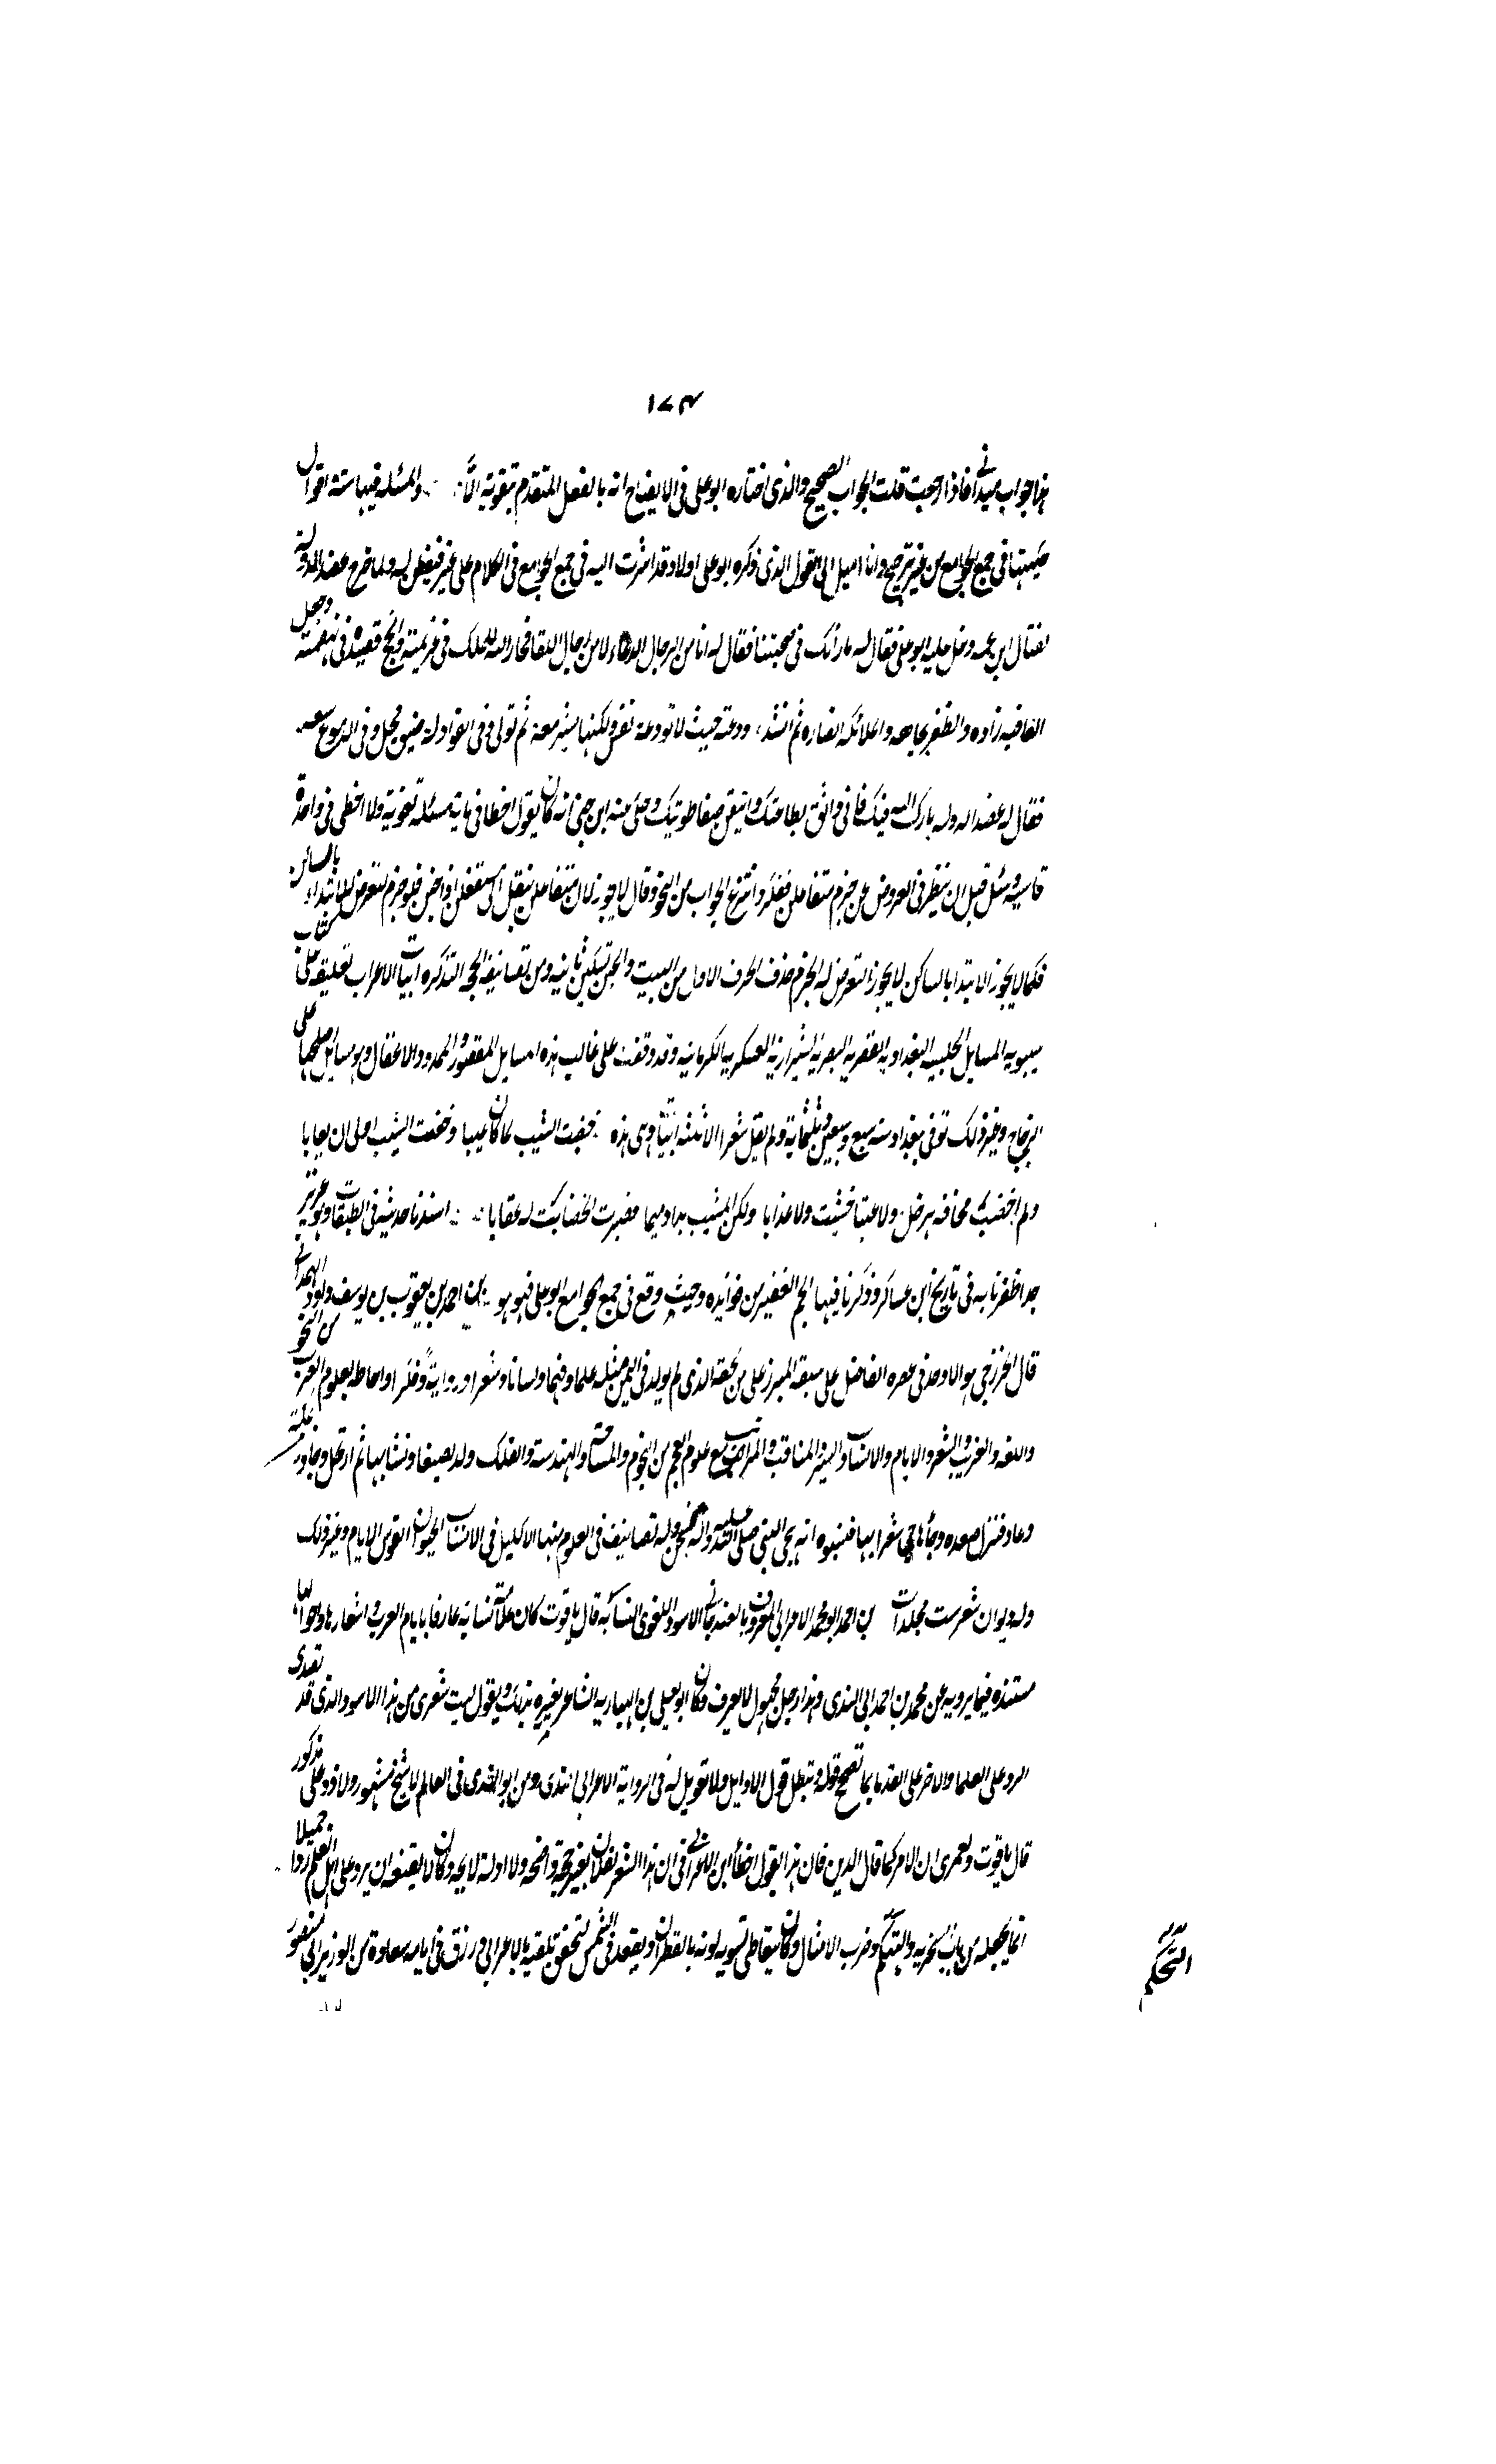 ١٧٣
هذا جواب ميداني فاذا رجعت قلت الجواب الصحيح والذي اختاره ابو علي في الايضاح انه بالفعل المتقدم بتقوية الا والمسئلة فيها ستة اقوال
حكيتها في جمع الجوامع من غير ترجيح وانا اميل الى القول الذي ذكره ابو علي اولا وقد اشرت اليه في جمع الجوامع في الكلام على غير فيفطن له ولما خرج عضد الدولة
لقتال ابن عمه دخل عليه ابو علي فقال له ما رأيك في صحبتنا فقال له انا من الرجال الدعاء لا من رجال اللقا فخار الله للملك في عزيمته وانجح قصده في نهضته وجعل
العافيه زاده والظفر تجاهه والملائكه انصاره ثم انشد ودعته حيث لا تودعه نفسي ولكنها تسير معه ثم تولى وفي الفؤاد له ضيق محل وفي الدموع سعه
فقال له عضد الدوله بارك الله فيك فاني واثق بطاعتك واتيقن صفا طويتك وحكى عنه ابن جني انه كان يقول اخطا في ماية مسئلة لغوية ولا اخطى في واحدة
قياسيه وسئل قبل ان ينظر في العروض عن خرم متفاعلن ففكر وانتزع الجواب من النحو وقال لا يجوز لان متفاعلن ينقل الى مستفعلن اذا خبن فلو خرم لتعرض للابتداء بالساكن
فكما لا يجوز الابتدا بالساكن لا يجوز التعرض له الخرم حذف الحرف الاول من البيت والخبن تسكين ثانيه ومن تصانيفه الحجه التذكره ابيات الاعراب تعليقه على كتاب
سيبويه المسايل الحلبيه البغداديه القصريه البصريه الشيرازيه العسكريه الكرمانيه وقد وقفت على غالب هذه المسايل المقصور والممدود الاغفال وهو مسايل اصلحها على
الزجاج وغير ذلك توفي ببغداد سنة سبع وسبعين وثلثماية ولم يقل شعرا الا ثلثة ابيات وهي هذه خضبت الشيب لما كان عيبا وخضب الشيب اولى ان يعابا
ولم اخضب مخافة هجر خل ولا عتبا خشيت ولا عذابا ولكن المشيب بدا ذميما فصيرت الخضاب له عقابا اسندنا حديثه في الطبقات وهو عزيز
جدا ظفرنا به في تاريخ ابن عساكر وذكرنا فيها الجم الغفير من فوايده وحيث وقع في جمع الجوامع ابو علي فهو هو بن احمد بن يعقوب بن يوسف بن داود الهمداني
قال الخزرجي هو الاوحد في عصره الفاضل على سبقه المبرز على من لحقه الذي لم يولد في اليمن مثله علما وفهما ولسانا وشعرا ورواية وفكرا واحاطه بعلوم العرب من النحو
واللغه والغريب والشعر والايام والانساب والسير والمناقب والمثالب مع علوم العجم من النجوم والمساحه والهندسة والفلك ولد بصنعا ونشا بها ثم ارتحل وجاور بمكة
وعاد فنزل صعده وهجا شعرا بها فنسبوه انه هجى النبي صلى الله عليه واله فسجن وله تصانيف في العلوم منها الاكليل في الانساب الحيوان القوس الايام وغير ذلك
وله ديوان شعر ست مجلدات بن احمد ابو محمد الاعرابي المعروف بالغندجاني الاسود اللغوي النسابه قال ياقوت كان علامة نسابه عارفا بايام العرب واشعارها واحوالها
مستنده فيما يرويه عن محمد بن احمد ابي الندى وهذا رجل مجهول لا يعرف وكان ابو يعلى بن الهباريه الشاعر يعيره بذلك ويقول ليت شعري من هذا الاسود الذي قد تصدى
الرد على العلما والاخذ على القدما بما نصحح قوله ونبطل قول الاوايل ولا تعويل له في الرواية الا على ابي الندى ومن ابو الندى في العالم لا شيخ مشهور ولا ذو علم مذكور
قال ياقوت ولعمري ان الامر كما قال الدين فان هذا يقول اخطأ ابن الاعرابي في ان هذا الشعر لفلان بغير حجة واضحه ولا ادلة لايحه وكان لا يقنعه ان يرد على اهل العلم ردا جميلا
انما يجعله من باب السخريه والتهكم وضرب الامثال وكان يتعاطى تسويد لونه بالقطران ويقعد في الشمس لتحقق تلقيه بالاعرابي ورزق في ايامه سعادة من الوزير ابي منصور
التحكم